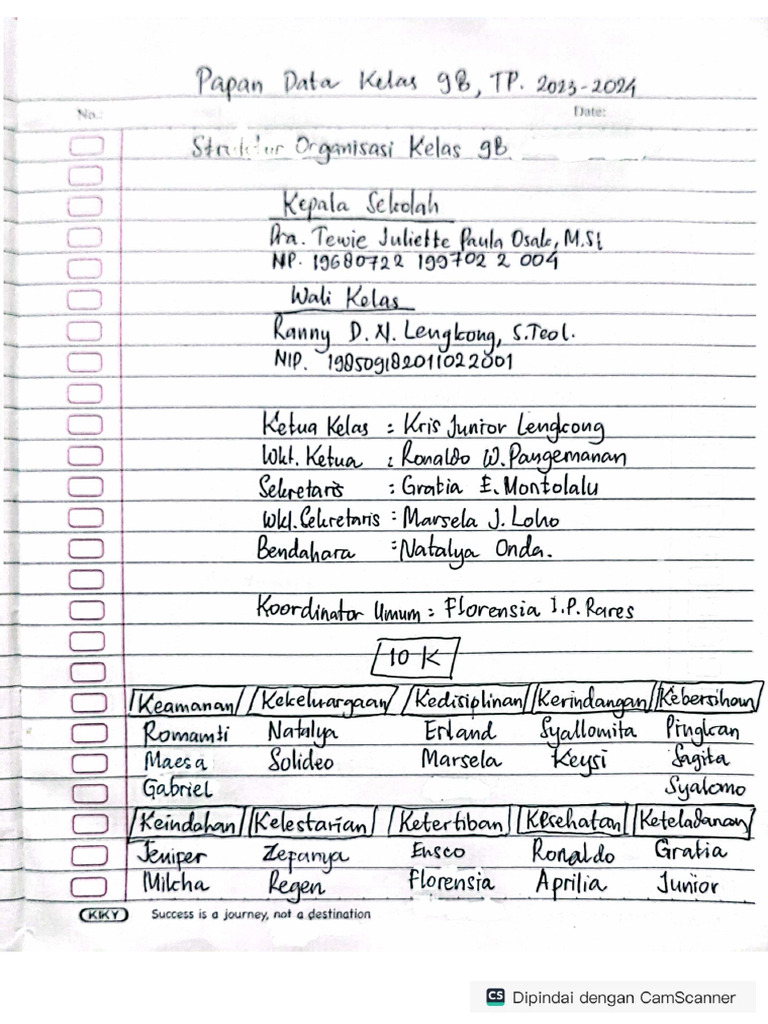 Papan Data Kelas 9B, TP. 2023-2024
No.: Date:
Struktur Organisasi Kelas 9B
Kepala Sekolah
Dra. Tewie Juliette Paula Osak, M.Si
NP. 19680722 199702 2 004
Wali Kelas
Ranny D. N. Lengkong, S.Teol.
NIP. 198509182011022001
Ketua Kelas : Kris Junior Lengkong
Wkl. Ketua : Ronaldo W. Pangemanan
Sekretaris : Gratia E. Montolalu
Wkl. Sekretaris : Marsela J. Loho
Bendahara : Natalya Onda.
Koordinator Umum : Florensia I.P. Rares
10 K
Keamanan Kekeluargaan Kedisiplinan Kerindangan Kebersihan
Romamti Natalya Erland Syallomita Pingkan
Maesa Solideo Marsela Keysi Sagita
Gabriel Syalomo
Keindahan Kelestarian Ketertiban Kesehatan Keteladanan
Jeniper Zefanya Ensco Ronaldo Gratia
Milcha Regen Florensia Aprilia Junior
KIKY Success is a journey, not a destination
CS Dipindai dengan CamScanner